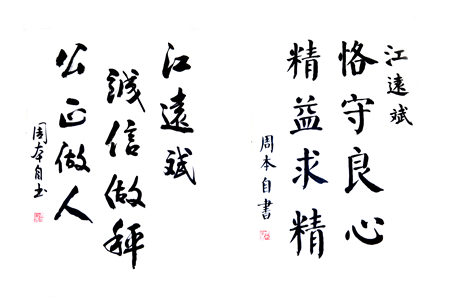 江遠斌
恪守良心
精益求精
周本自書
江遠斌
誠信做秤
公正做人
周本自书